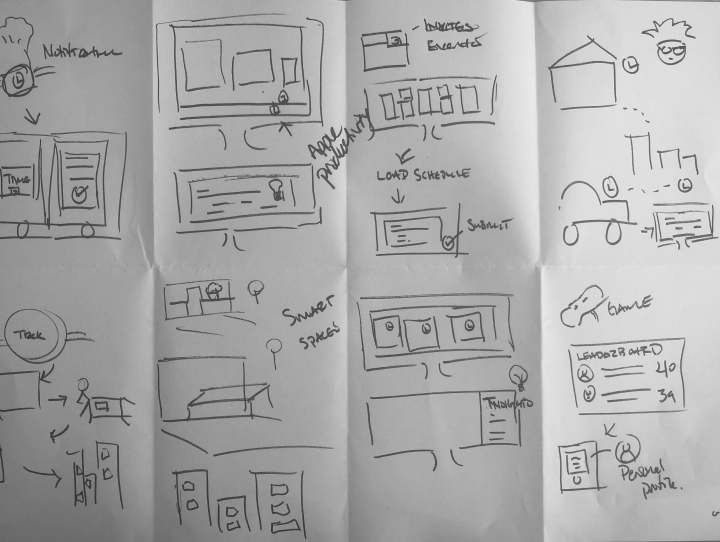 Notification
TRACK
Apple
productivity
LOAD SCHEDULE
SUBMIT
Track
SMART
SPACES
INSIGHTS
GAME
LEADERBOARD
40
39
Personal
profile.